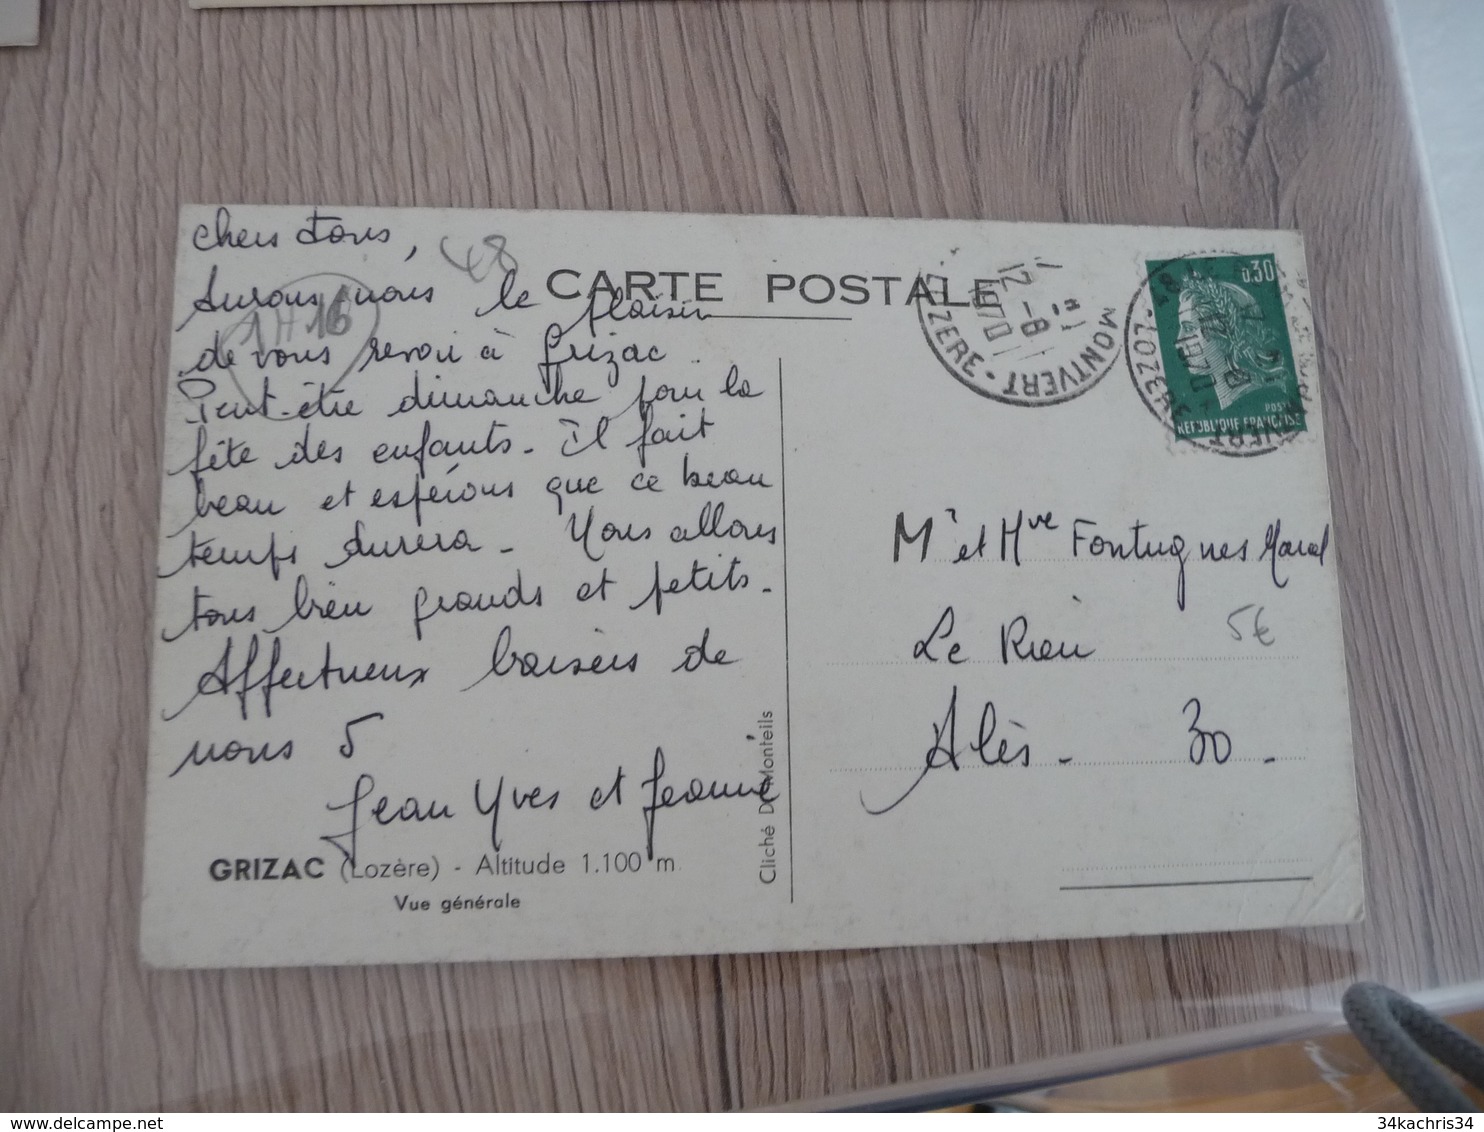 Chers tous,
48
Aurons nous le plaisir
1H16
de vous revoir à Grizac.
Peut-être dimanche pour la
fête des enfants. Il fait
beau et espérons que ce beau
temps durera. Nous allons
tous bien grands et petits.
Affectueux baisers de
nous 5
Jean Yves et Jeanne
GRIZAC (Lozère) - Altitude 1.100 m.
Vue générale
Cliché D. Monteils
CARTE POSTALE
MONTVERT
LOZERE
12-8
1970
0,30
POSTES
REPUBLIQUE FRANÇAISE
LOZERE
1970
Mr et Mme Fontugnes Marcel
Le Rieu
5€
Alès - 30 -
34kachris34